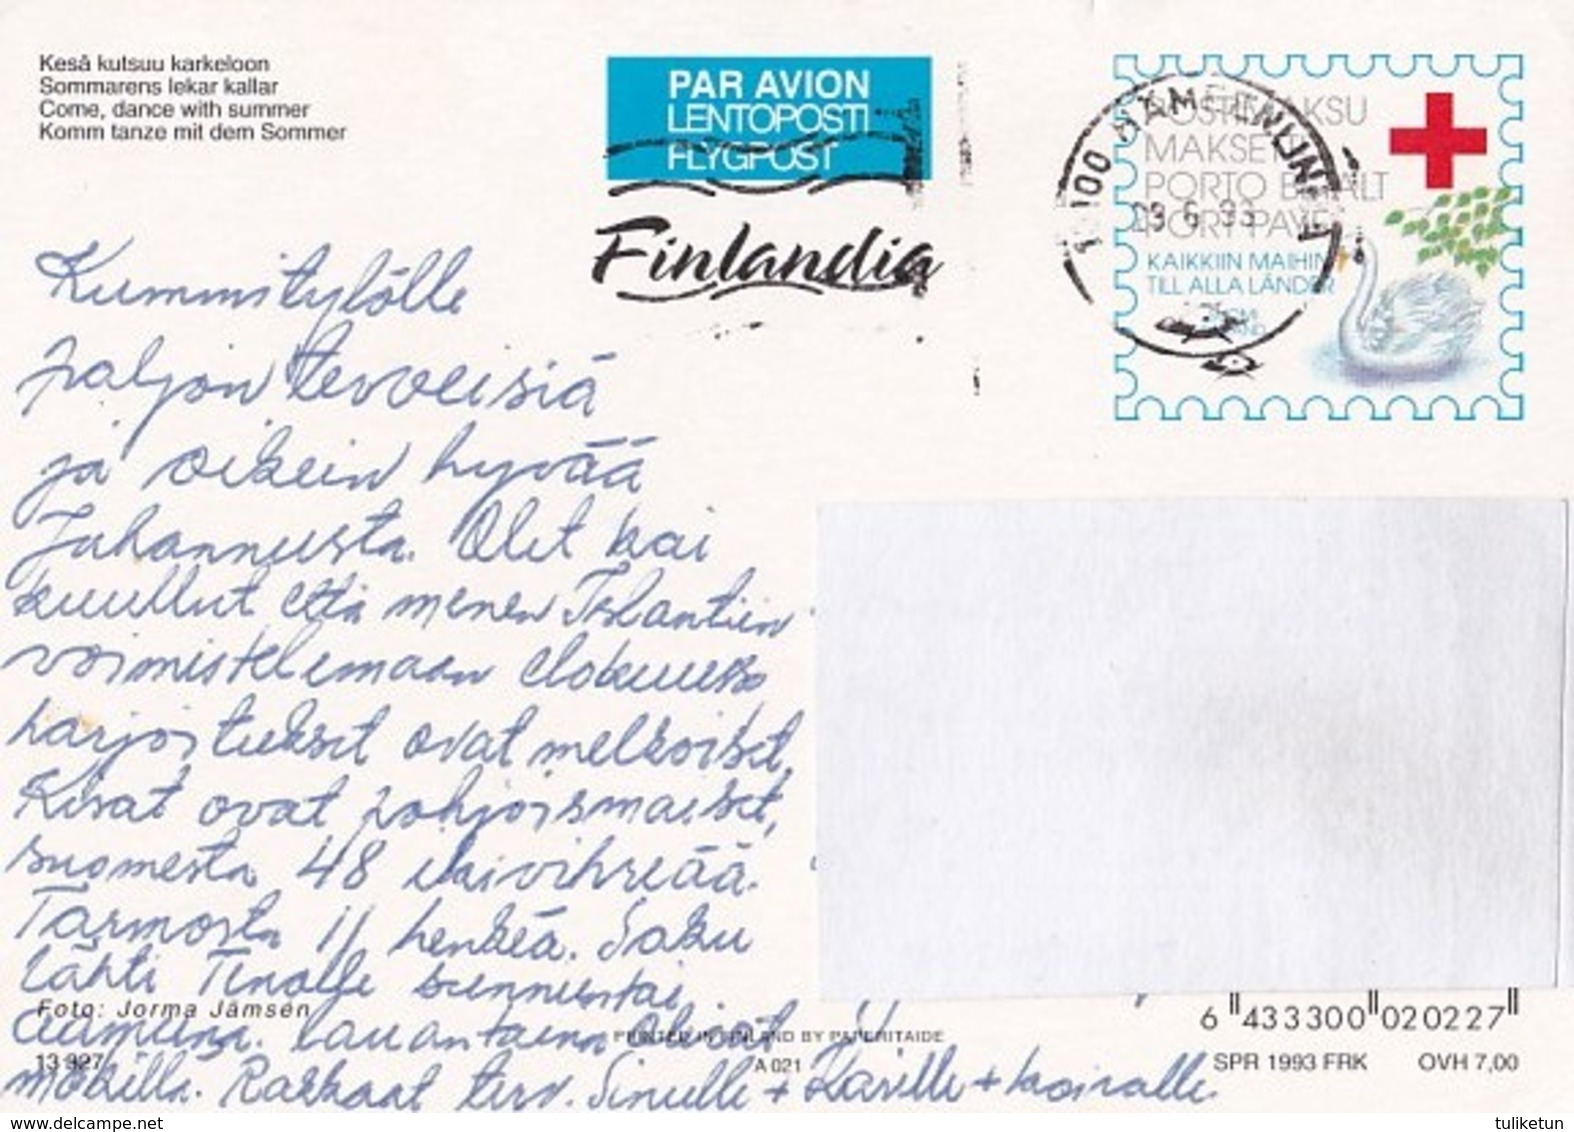 Kesä kutsuu karkeloon
Sommarens lekar kallar
Come, dance with summer
Komm tanze mit dem Sommer
PAR AVION
LENTOPOSTI
FLYGPOST
Finlandia
POSTIMAKSU
MAKSETTU
PORTO BETALT
PORT PAYÉ
KAIKKIIN MAIHIN
TILL ALLA LÄNDER
Kummitytölle
paljon terveisiä
ja oikein hyvää
Juhannusta. Olet kai
kuullut että menen Islantiin
voimistelemaan elokuussa
harjoitukset ovat melkoiset,
Kisat ovat pohjoismaiset,
suomesta 48 kaivihreää.
Tarmosta 11 henkeä. Saku
lähti Tinolle sunnuntai
aamuna. lauantaina olivat
mökillä. Rakkaat terv. Sinulle + Karille + koiralle.
Foto: Jorma Jämsen
13 927
PRINTED IN FINLAND BY PAPERITAIDE
A 021
6 433300 020227
SPR 1993 FRK OVH 7,00
delcampe.net
tuliketun